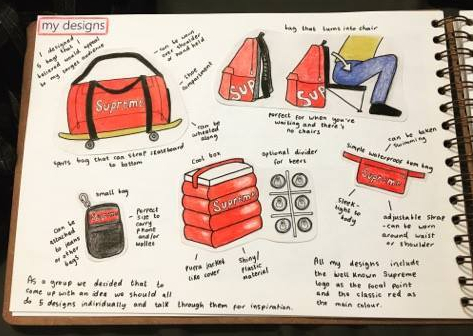 my designs
I designed
5 bags that I
believed would appeal
to my target audience
- can be worn
over shoulder
or hand held
- shoe
compartment
Supreme
- can be
wheeled
along
sports bag that can strap skateboard
to bottom
bag that turns into chair
Sup
Sup
perfect for when you're
waiting and there's
no chairs
small bag
can be
attached
to jeans
or other
bags
Supreme
- perfect
size to
carry
phone
and/or
wallet
cool box
Supreme
puffa jacket
like cover
shiny/
plastic
material
optional divider
for beers
can be taken
swimming
simple waterproof bum bag
Supreme
sleek -
tight to
body
adjustable strap
- can be worn
around waist
or shoulder
As a group we decided that to
come up with an idea we should all
do 5 designs individually and talk through them for inspiration.
All my designs include
the well known Supreme
logo as the focal point
and the classic red as
the main colour.